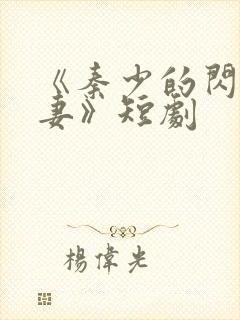 《秦少的閃
妻》短劇
楊偉光